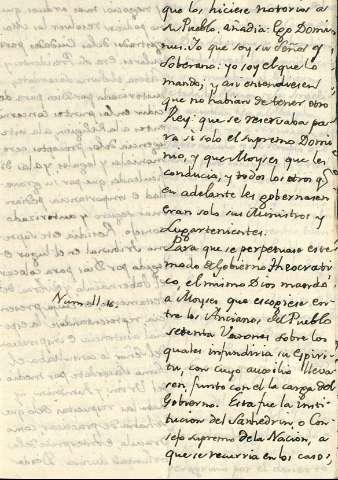 que los hiciese notorios a
su Pueblo, añadia: Ego Domi-
nus. Yo que soy su Señor y
Soberano: yo soy el que lo
mando; y asi entendiesen
que no habian de tener otro
Rey: que se reservaba pa-
ra si solo el supremo Domi-
nio, y que Moyses que les
conducia, y todos los otros q.
en adelante les gobernasen
eran solo sus Ministros y
Lugartenientes.
Para que se perpetuase este
modo de Gobierno Theocrati-
co, el mismo Dios mandó
a Moyses, que escogiese en-
Num. 11. 16.
tre los Ancianos, del Pueblo
setenta Varones sobre los
quales infundiria su Espiri-
tu, con cuyo auxilio lleva-
sen junto con el la carga del
Gobierno. Esta fue la Insti-
tucion del Sanhedrin, o Con-
sejo supremo de la Nacion, a
que se recurria en los casos,